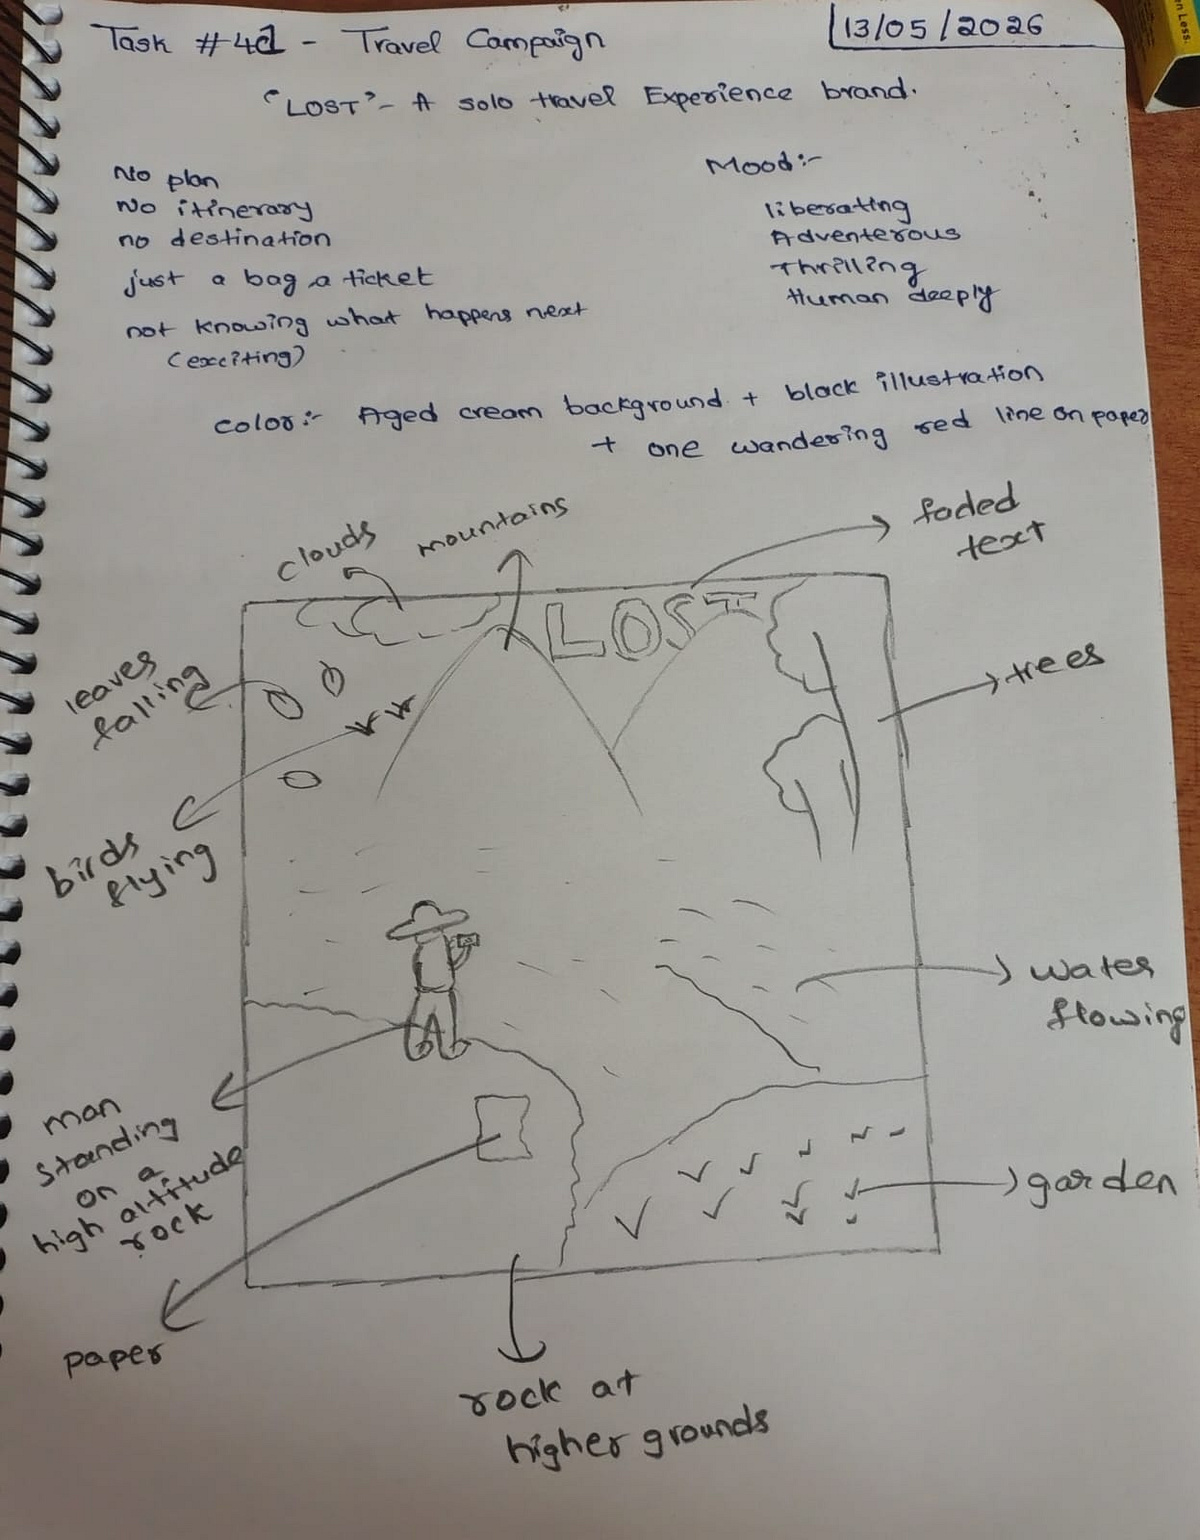 Task #4d - Travel Campaign
13/05/2026
"LOST" - A solo travel Experience brand.
No plan
No itinerary
no destination
just a bag a ticket
not knowing what happens next
(exciting)
Mood:-
liberating
Adventerous
Thrilling
Human deeply
color:- Aged cream background + black illustration
+ one wandering red line on paper
clouds
mountains
faded
text
LOST
leaves
falling
trees
birds
flying
water
flowing
man
standing
on a
high altitude
rock
garden
paper
rock at
higher grounds
en Less.